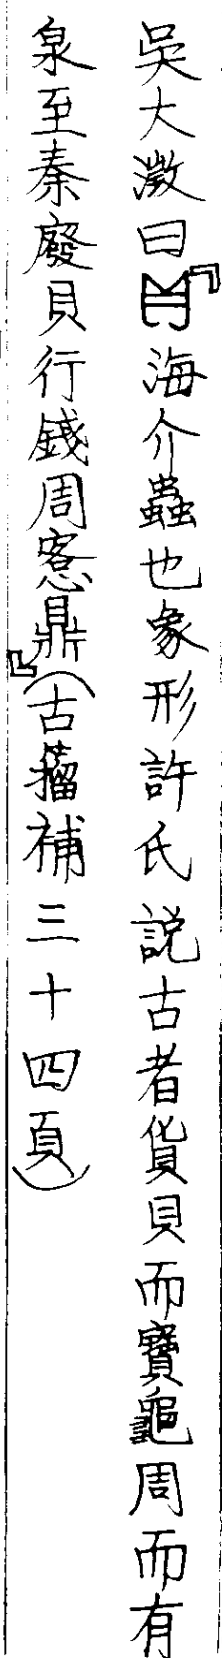 吳大澂曰『貝海介蟲也象形許氏說古者貨貝而寶龜周而有
泉至秦廢貝行錢周愙鼎』(古籀補三十四頁)